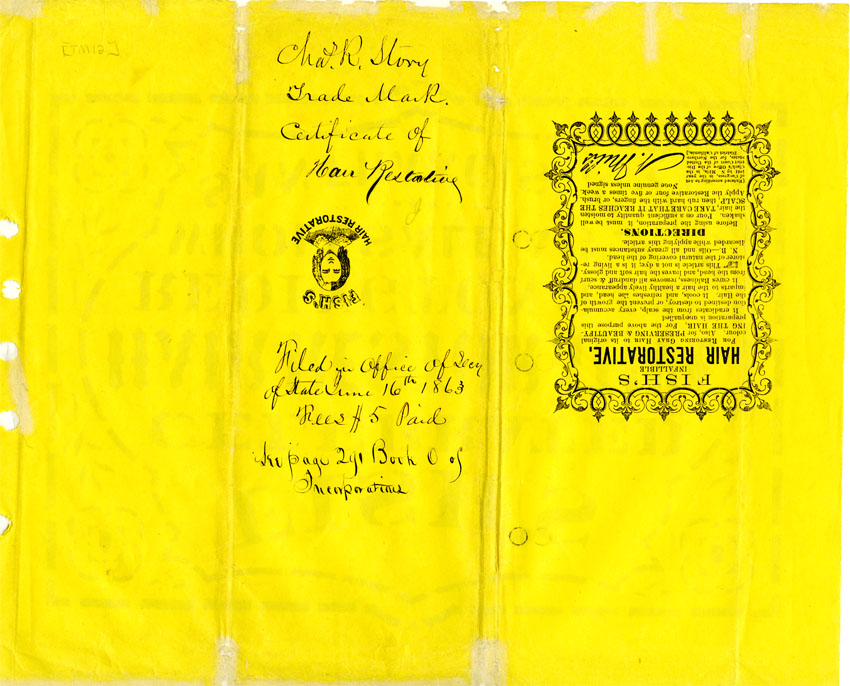 Chas. R. Story
Trade Mark.
Certificate of
Hair Restorative
FISH'S
HAIR RESTORATIVE
Filed in Office of Secy
of State June 16th 1863
Fees $5 Paid
See page 291 Book O of
Incorporations
FISH'S
INFALLIBLE
HAIR RESTORATIVE,
FOR RESTORING GRAY HAIR to its original
colour. Also, for PRESERVING & BEAUTIFY-
ING THE HAIR. For the above purpose this
preparation is unequalled
It eradicates from the scalp, every accumula-
tion destined to destroy, or prevent the growth of
the Hair. It cools, and refreshes the head, and
imparts to the hair a healthy lively appearance.
It cures Baldness, removes all dandruff & scurf
from the head, and leaves the hair soft and glossy.
☞ This article is not a dye; it is a living re-
storer of the natural covering of the head.
N. B.—Oils and all greasy substances must be
discarded while applying this article.
DIRECTIONS.
Before using the preparation, it must be well
shaken. Pour on a sufficient quantity to moisten
the hair, TAKE CARE THAT IT REACHES THE
SCALP, then rub hard with the fingers, or brush.
Apply the Restorative four or five times a week.
None genuine unless signed
[Entered according to Act
of Congress, in the year
1861 by N. Mills, in the
Clerk's Office of the Dis-
trict Court of the United
States, for the Northern
District of California.]
N. Mills